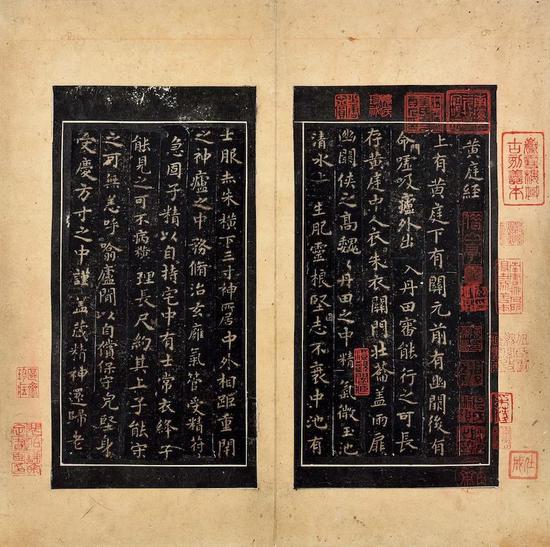 黃庭經
上有黃庭下有關元前有幽闕後有
命門噓吸廬外出入丹田審能行之可長
存黃庭中人衣朱衣關門壯蘥蓋兩扉
幽闕俠之高魏魏丹田之中精氣微玉池
清水上生肥靈根堅志不衰中池有
士服赤朱橫下三寸神所居中外相距重閉
之神廬之中務脩治玄膺氣管受精符
急固子精以自持宅中有士常衣絳子
能見之可不病橫理長尺約其上子能守
之可無恙呼噏廬間以自償保守完堅身
受慶方寸之中謹蓋藏精神還歸老